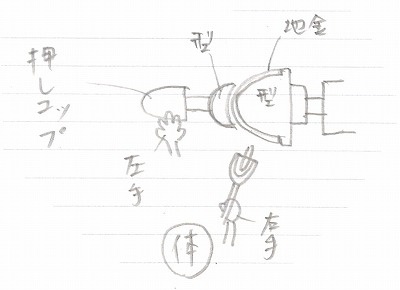 地金
型
押しコップ
型
左手
右手
体